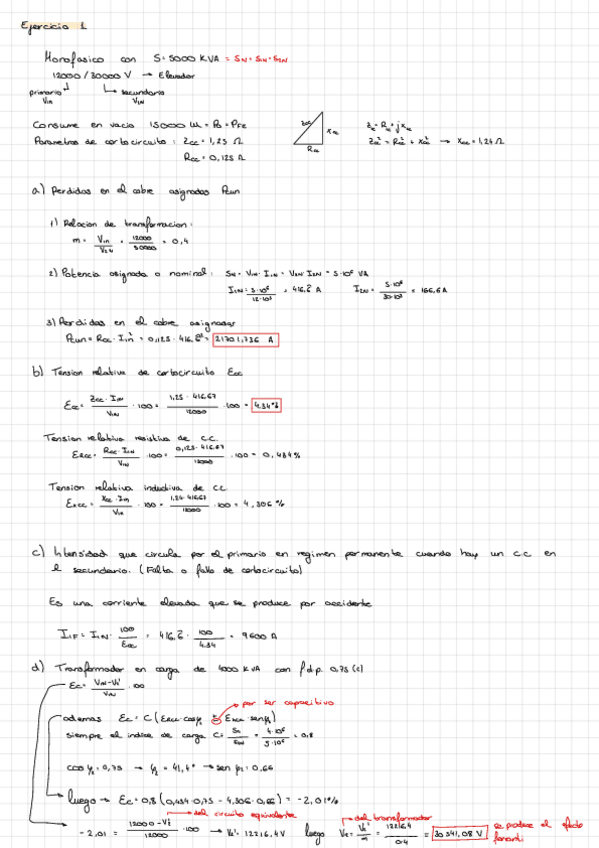 Ejercicio 1
Monofasico con S = 5000 KVA = SN = S1N = S2N
12000 / 30000 V → Elevador
primario secundario
V1N V2N
Consume en vacio 15000 W = P0 = PFe
Parametros de cortocircuito : Zcc = 1,25 Ω
Rcc = 0,125 Ω
Zcc Xcc
Rcc
Zcc² = Rcc² + Xcc² → Xcc = 1,24 Ω
a) Perdidas en el cobre asignadas Pcun
1) Relacion de transformacion:
m = V1N/V2N = 12000/30000 = 0,4
2) Potencia asignada o nominal : SN = V1N · I1N = V2N · I2N = 5·10⁶ VA
I1N = 5·10⁶/12·10³ = 416,6 A I2N = 5·10⁶/30·10³ = 166,6 A
3) Perdidas en el cobre asignadas
Pcun = Rcc · I1n² = 0,125 · 416,6² = 21701,736 A
b) Tension relativa de cortocircuito Ecc
Ecc = Zcc · I1n/V1N · 100 = 1,25 · 416,67/12000 · 100 = 4.34%
Tension relativa resistiva de c.c.
ERcc = Rcc · I1N/V1N · 100 = 0,125 · 416.67/12000 · 100 = 0,434%
Tension relativa inductiva de cc
EXcc = Xcc · I1n/V1n · 100 = 1,24 · 416,67/12000 · 100 = 4,306%
c) Intensidad que circula por el primario en regimen permanente cuando hay un c.c en
el secundario. (Falta o fallo de cortocircuito)
Es una corriente elevada que se produce por accidente
I1F = I1N · 100/Ecc = 416,6 · 100/4.34 = 9600 A
d) Transformador en carga de 4000 KVA con f.d.p. 0,75 (c)
Ec = V1N - V1'/V1N · 100
por ser capacitivo
ademas Ec = C (ERcc · cosφ ± EXcc · senφ)
siempre el indice de carga C = S2/S2N = 4·10⁶/5·10⁶ = 0,8
cos φ2 = 0,75 → φ2 = 41,4° → sen φ2 = 0.66
luego → Ec = 0,8 (0,434·0,75 - 4,306·0,66) = -2,01%
del circuito equivalente del transformador
-2,01 = 12000 - V2'/12000 · 100 → V2' = 12216,4 V luego V2 = V2'/m = 12216,4/0.4 = 30541,08 V se produce el efecto
ferranti